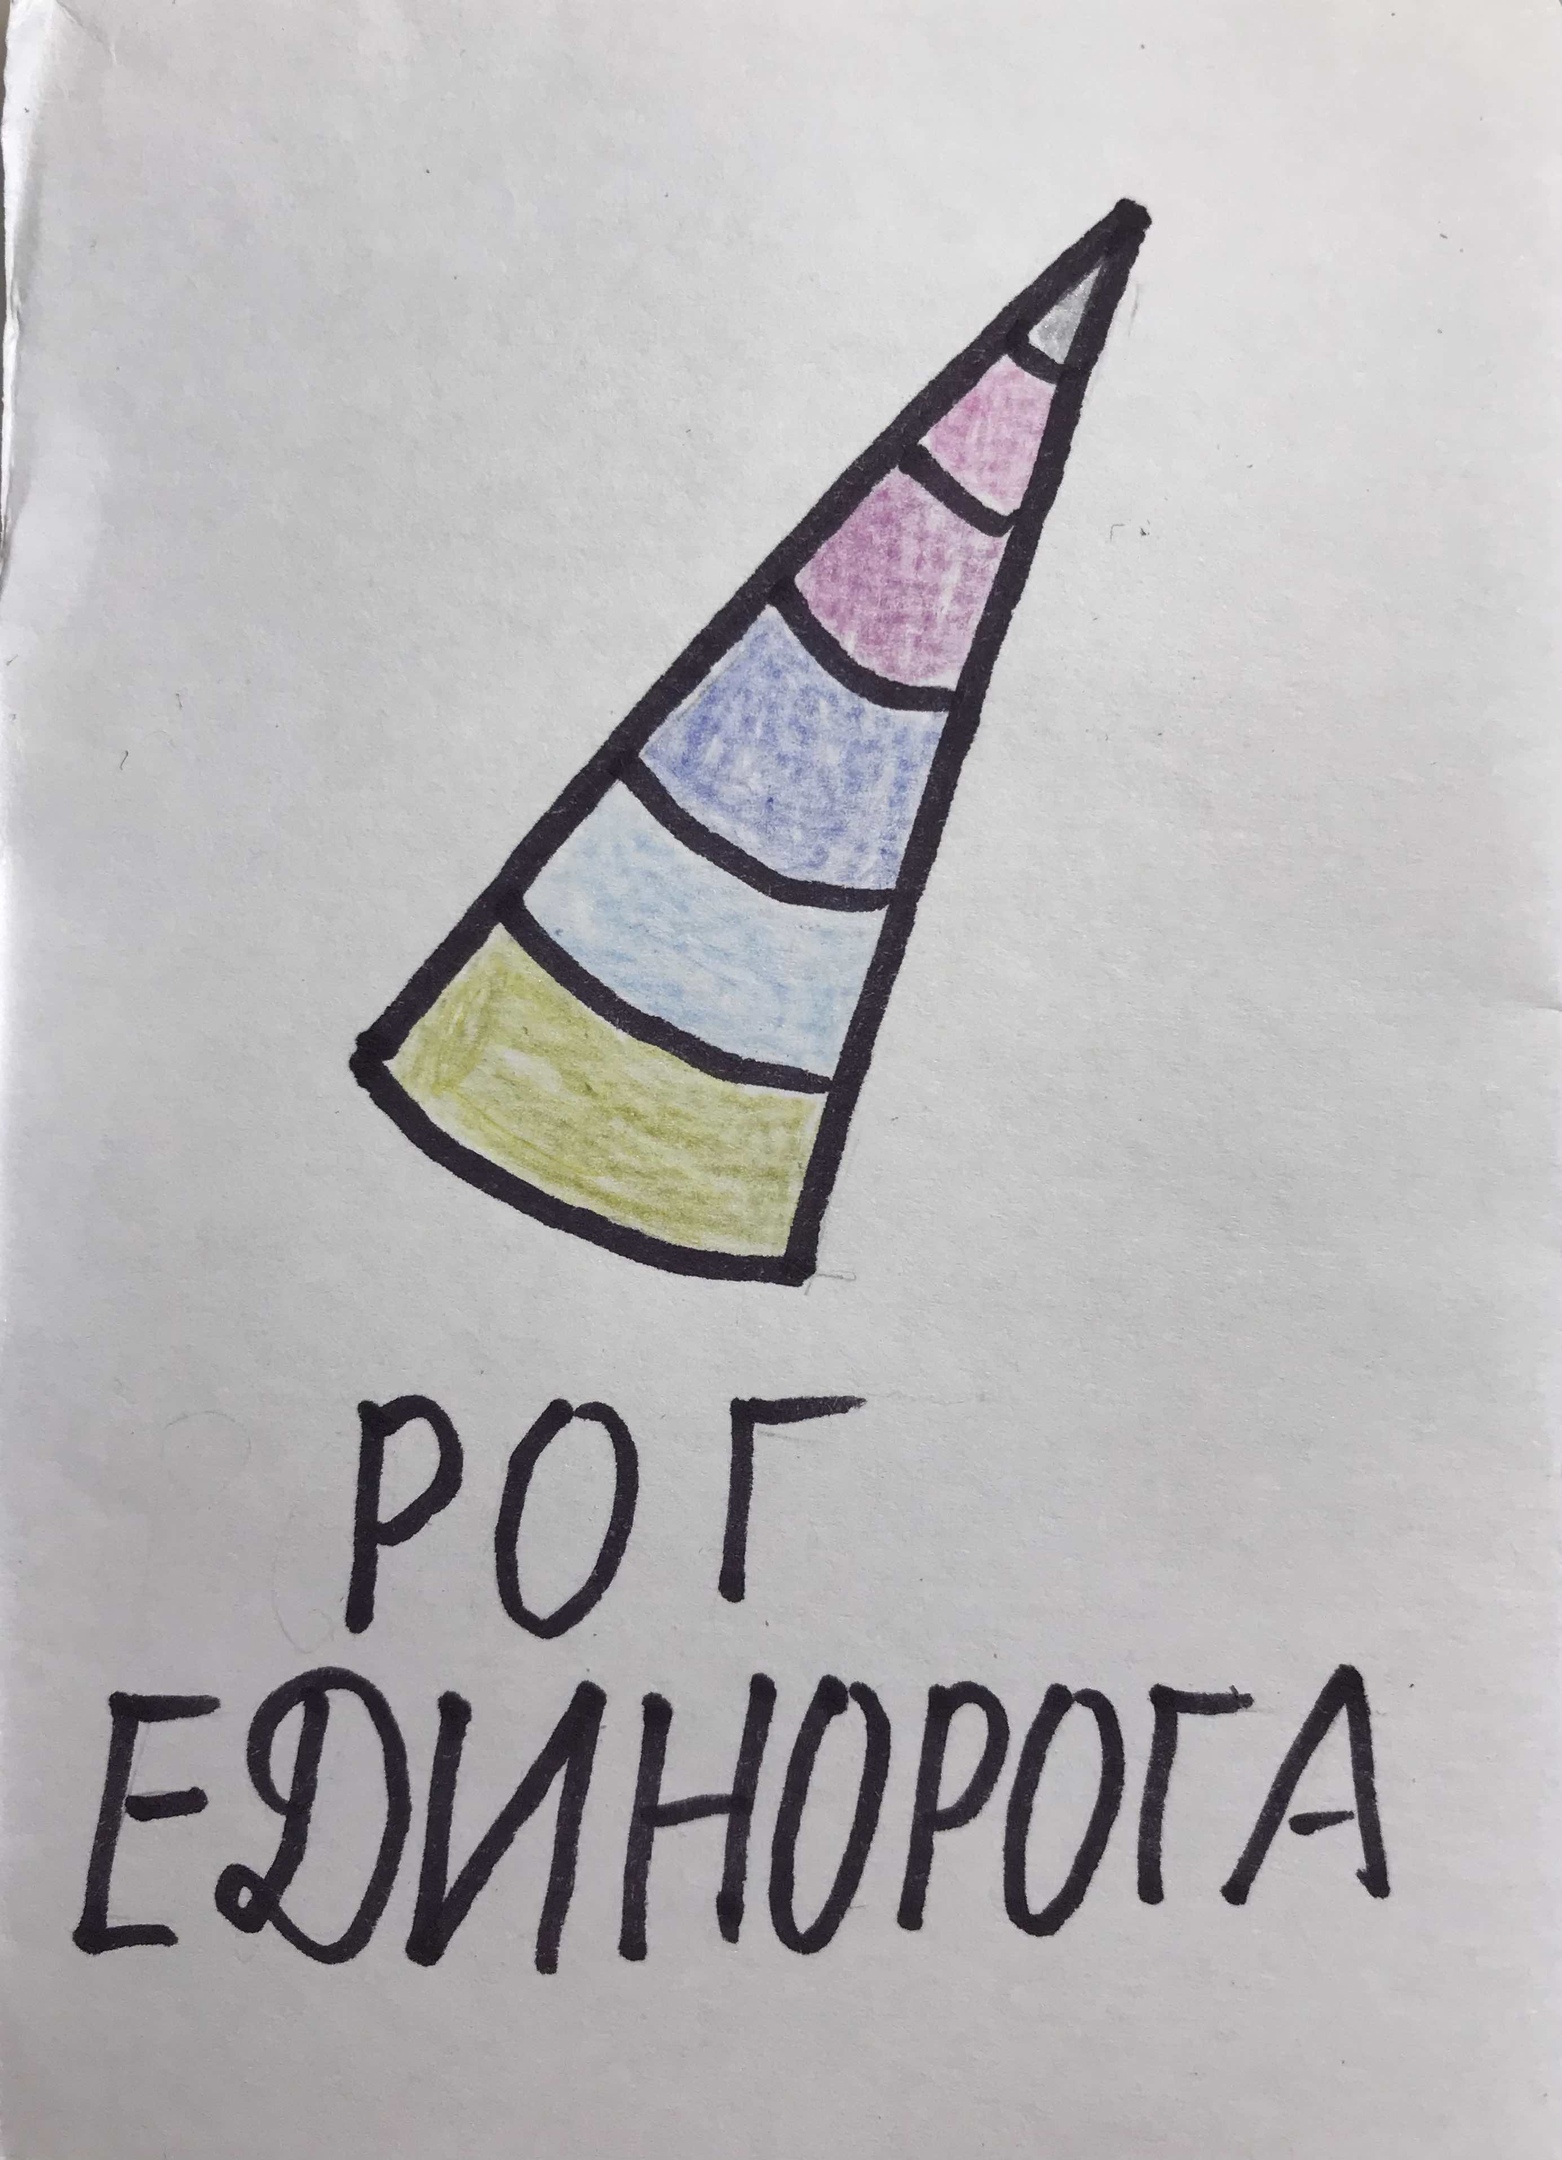 РОГ
ЕДИНОРОГА